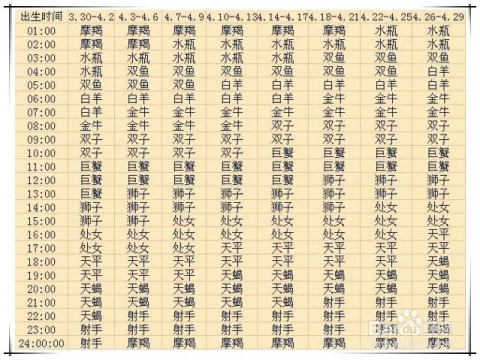 出生时间 3.30-4.2 4.3-4.6 4.7-4.9 4.10-4.13 4.14-4.17 4.18-4.21 4.22-4.25 4.26-4.29
01:00 摩羯 摩羯 摩羯 摩羯 摩羯 摩羯 水瓶 水瓶
02:00 摩羯 摩羯 水瓶 水瓶 水瓶 水瓶 水瓶 水瓶
03:00 水瓶 水瓶 水瓶 水瓶 水瓶 双鱼 双鱼 双鱼
04:00 水瓶 双鱼 双鱼 双鱼 双鱼 双鱼 双鱼 白羊
05:00 双鱼 双鱼 双鱼 白羊 白羊 白羊 白羊 白羊
06:00 白羊 白羊 白羊 白羊 白羊 金牛 金牛 金牛
07:00 白羊 金牛 金牛 金牛 金牛 金牛 金牛 金牛
08:00 金牛 金牛 金牛 金牛 双子 双子 双子 双子
09:00 双子 双子 双子 双子 双子 双子 双子 双子
10:00 双子 双子 双子 双子 巨蟹 巨蟹 巨蟹 巨蟹
11:00 巨蟹 巨蟹 巨蟹 巨蟹 巨蟹 巨蟹 巨蟹 巨蟹
12:00 巨蟹 巨蟹 巨蟹 巨蟹 巨蟹 狮子 狮子 狮子
13:00 巨蟹 狮子 狮子 狮子 狮子 狮子 狮子 狮子
14:00 狮子 狮子 狮子 狮子 狮子 狮子 处女 处女
15:00 狮子 狮子 狮子 处女 处女 处女 处女 处女
16:00 处女 处女 处女 处女 处女 处女 处女 天平
17:00 处女 处女 处女 天平 天平 天平 天平 天平
18:00 天平 天平 天平 天平 天平 天平 天平 天蝎
19:00 天平 天平 天平 天蝎 天蝎 天蝎 天蝎 天蝎
20:00 天蝎 天蝎 天蝎 天蝎 天蝎 天蝎 天蝎 天蝎
21:00 天蝎 天蝎 天蝎 天蝎 天蝎 射手 射手 射手
22:00 天蝎 射手 射手 射手 射手 射手 射手 射手
23:00 射手 射手 射手 射手 射手 射手
24:00:00 射手 摩羯 摩羯 摩羯 摩羯 摩羯 摩羯 摩羯